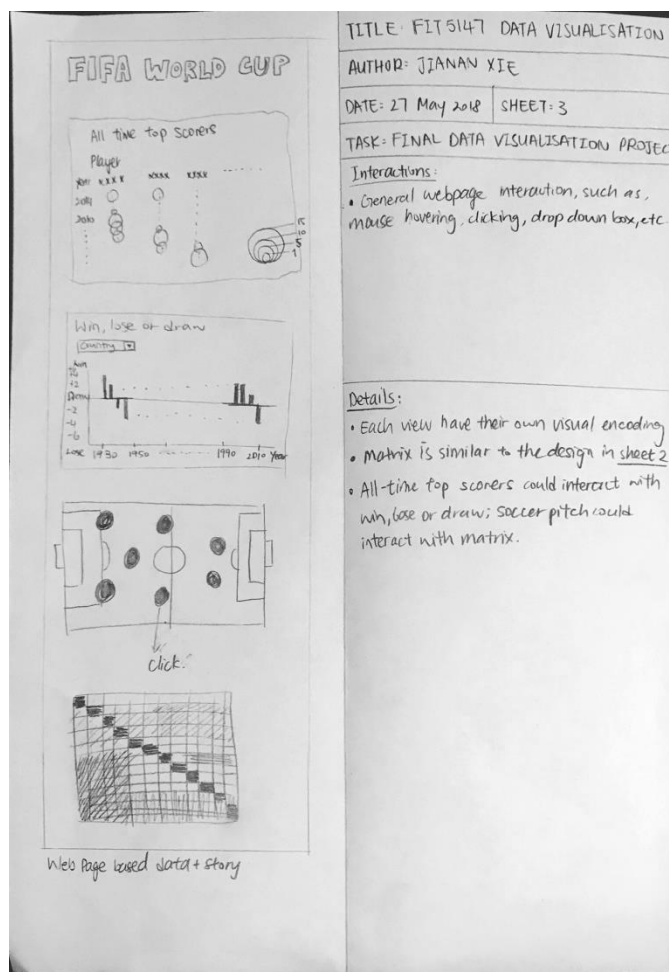 FIFA WORLD CUP
All time top scorers
Player
year xxxx xxxx xxxx
2014
2010
15
10
5
1
Win, lose or draw
Country
+2
Draw
-2
-4
-6
Lose 1930 1950 1990 2010 Year
click.
Web Page based data + story
TITLE: FIT5147 DATA VISUALISATION
AUTHOR: JIANAN XIE
DATE: 27 May 2018 SHEET: 3
TASK: FINAL DATA VISUALISATION PROJEC
Interactions:
• General webpage interaction, such as,
mouse hovering, clicking, drop down box, etc
Details:
• Each view have their own visual encoding
• Matrix is similar to the design in sheet 2
• All-time top scorers could interact with
win, lose or draw; soccer pitch could
interact with matrix.